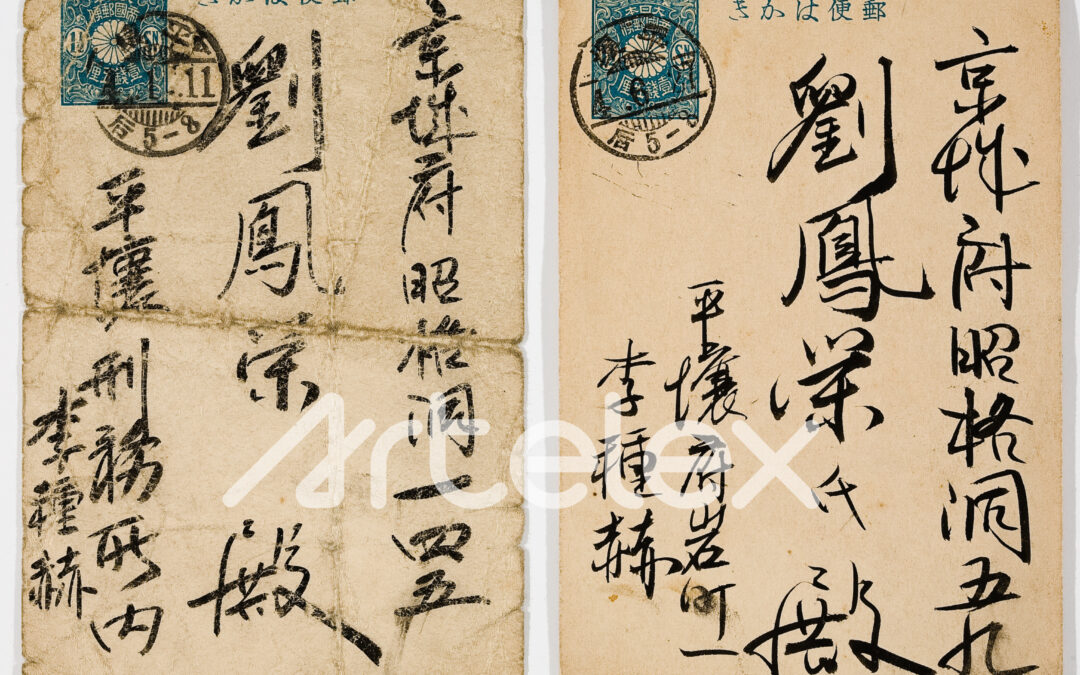 郵便はかき
京城府昭格洞一四五
劉鳳榮 殿
平壤刑務所內
李種赫
后5-8
郵便はかき
京城府昭格洞五九
劉鳳榮氏 殿
平壤府岩町一
李種赫
后5-8
Artelex